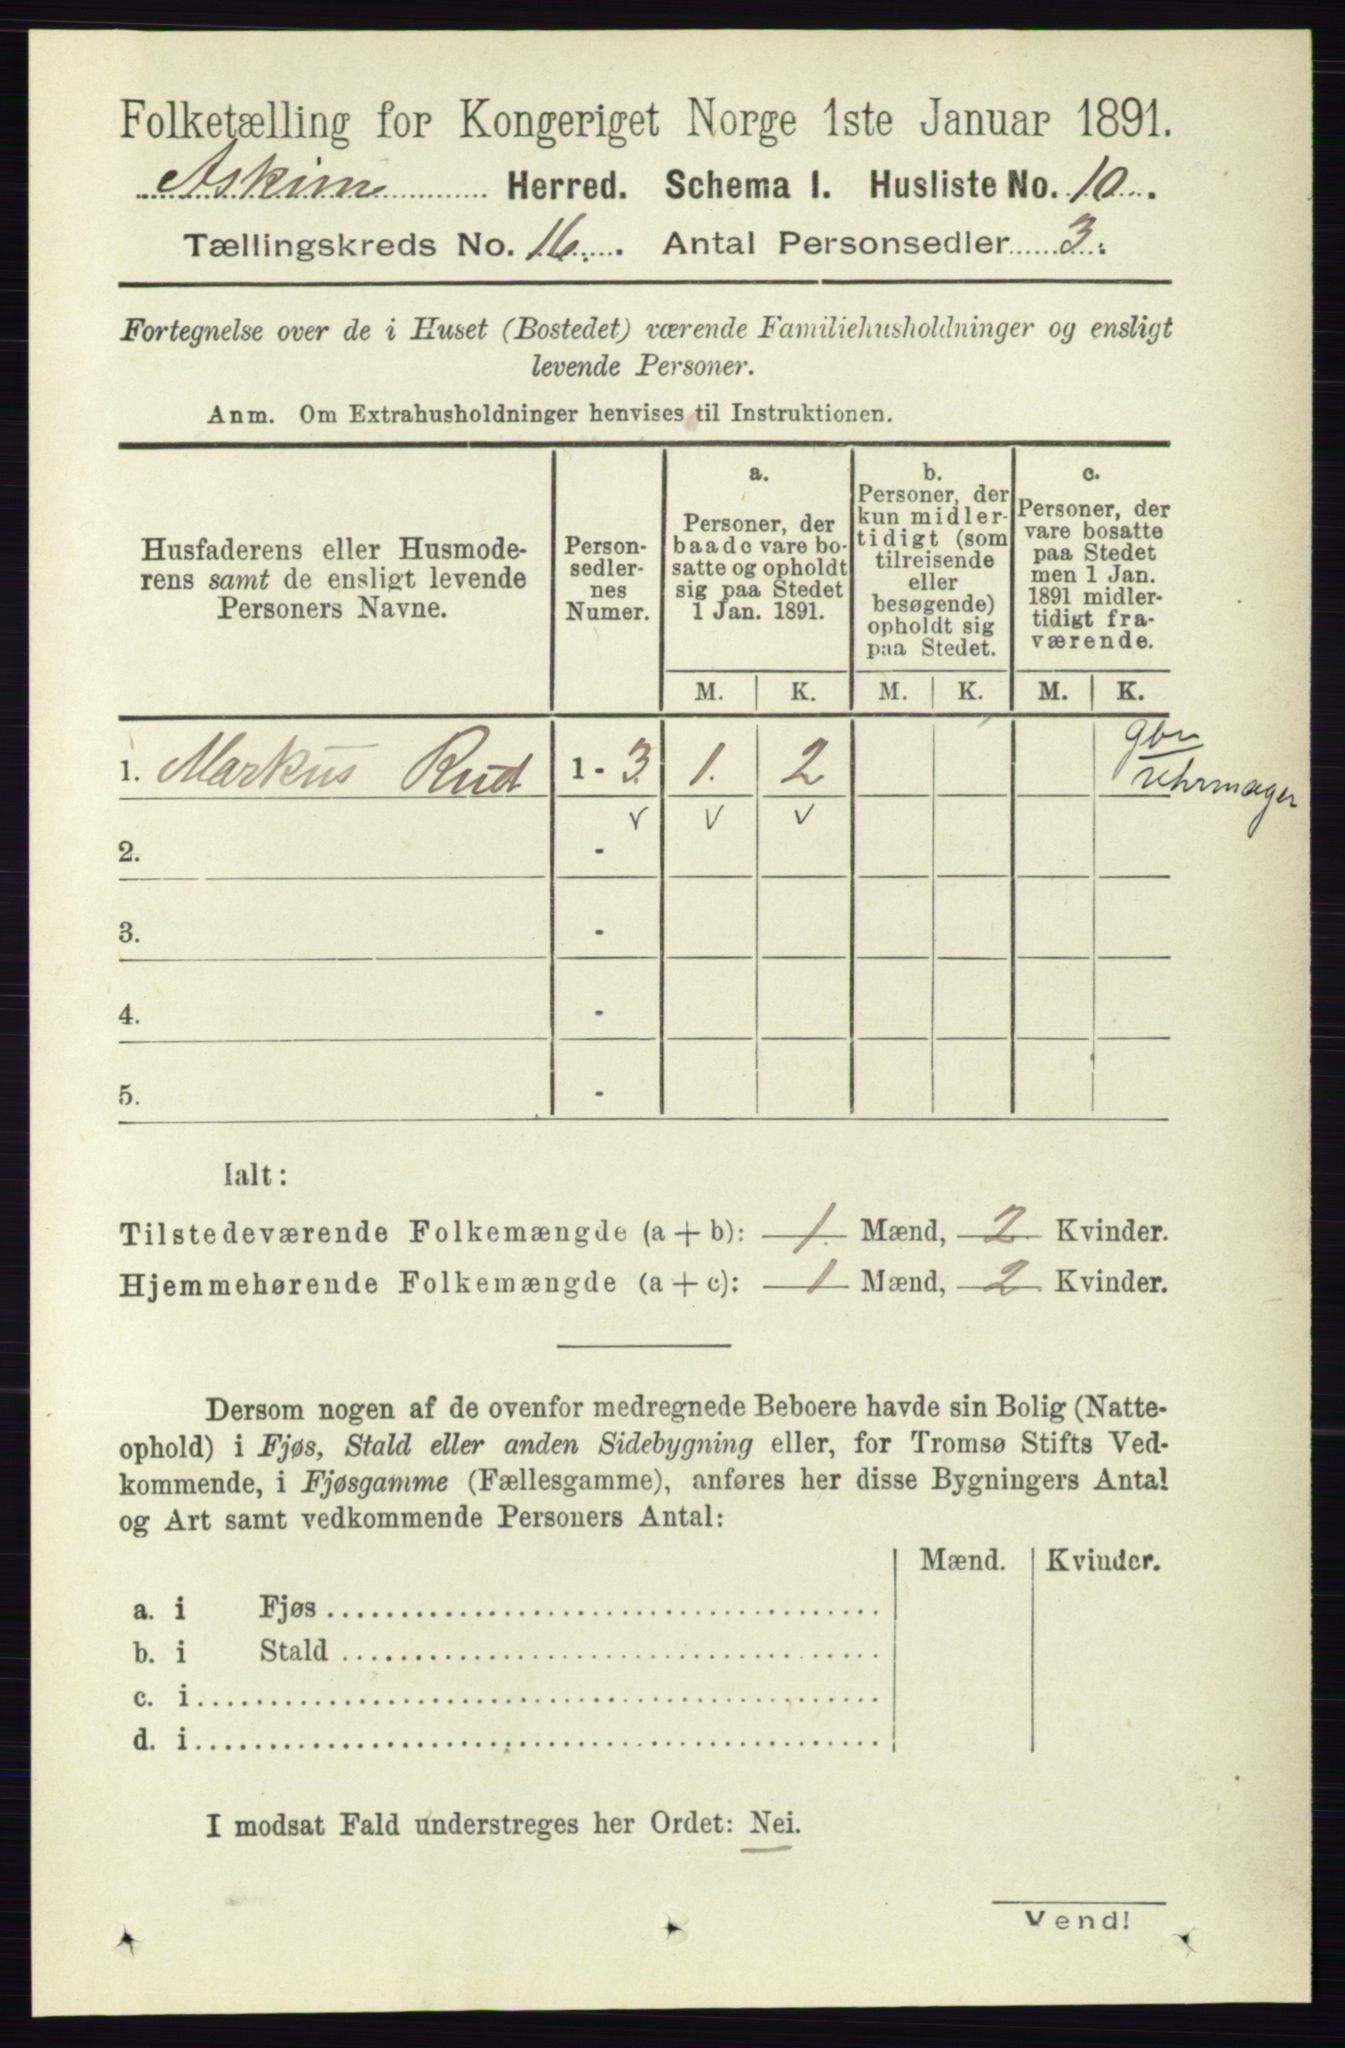 Folketælling for Kongeriget Norge 1ste Januar 1891.
Askim Herred. Schema 1. Husliste No. 10.
Tællingskreds No. 16. Antal Personsedler 3.
Fortegnelse over de i Huset (Bostedet) værende Familiehusholdninger og ensligt
levende Personer.
Anm. Om Extrahusholdninger henvises til Instruktionen.
Husfaderens eller Husmode-
rens samt de ensligt levende
Personers Navne.
Person-
sedler-
nes
Numer.
a.
Personer, der
baade vare bo-
satte og opholdt
sig paa Stedet
1 Jan. 1891.
b.
Personer, der
kun midler-
tidigt (som
tilreisende
eller
besøgende)
opholdt sig
paa Stedet.
c.
Personer, der
vare bosatte
paa Stedet
men 1 Jan.
1891 midler-
tidigt fra-
værende.
M. K. M. K. M. K.
1. Markus Rud 1 - 3. 1. 2 gbr
uhrmager
v v v
2. -
3. -
4. -
5. -
Ialt:
Tilstedeværende Folkemængde (a + b): 1. Mænd, 2. Kvinder.
Hjemmehørende Folkemængde (a + c): 1 Mænd, 2. Kvinder.
Dersom nogen af de ovenfor medregnede Beboere havde sin Bolig (Natte-
ophold) i Fjøs, Stald eller anden Sidebygning eller, for Tromsø Stifts Ved-
kommende, i Fjøsgamme (Fællesgamme), anføres her disse Bygningers Antal
og Art samt vedkommende Personers Antal:
Mænd. Kvinder.
a. i Fjøs
b. i Stald
c. i
d. i
I modsat Fald understreges her Ordet: Nei.
Vend!